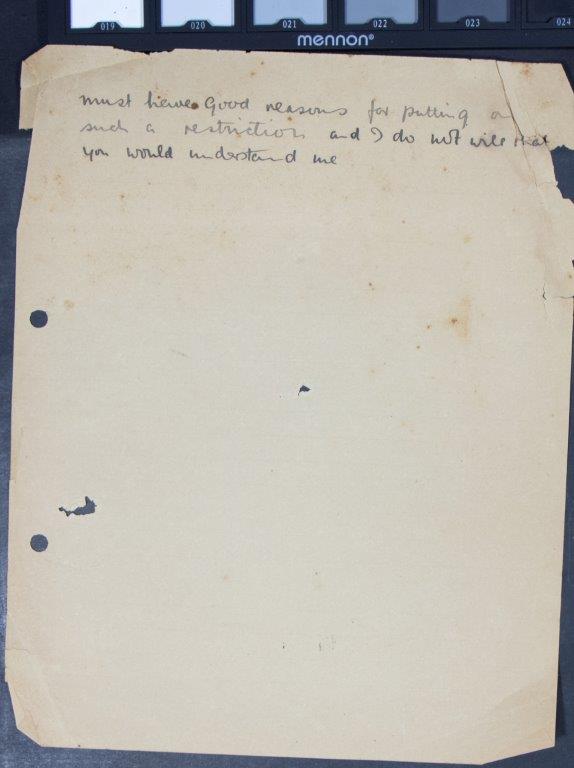 019 020 021 022 023 024
mennon®
must have Good reasons for putting on
such a restriction and I do not will that
you would understand me